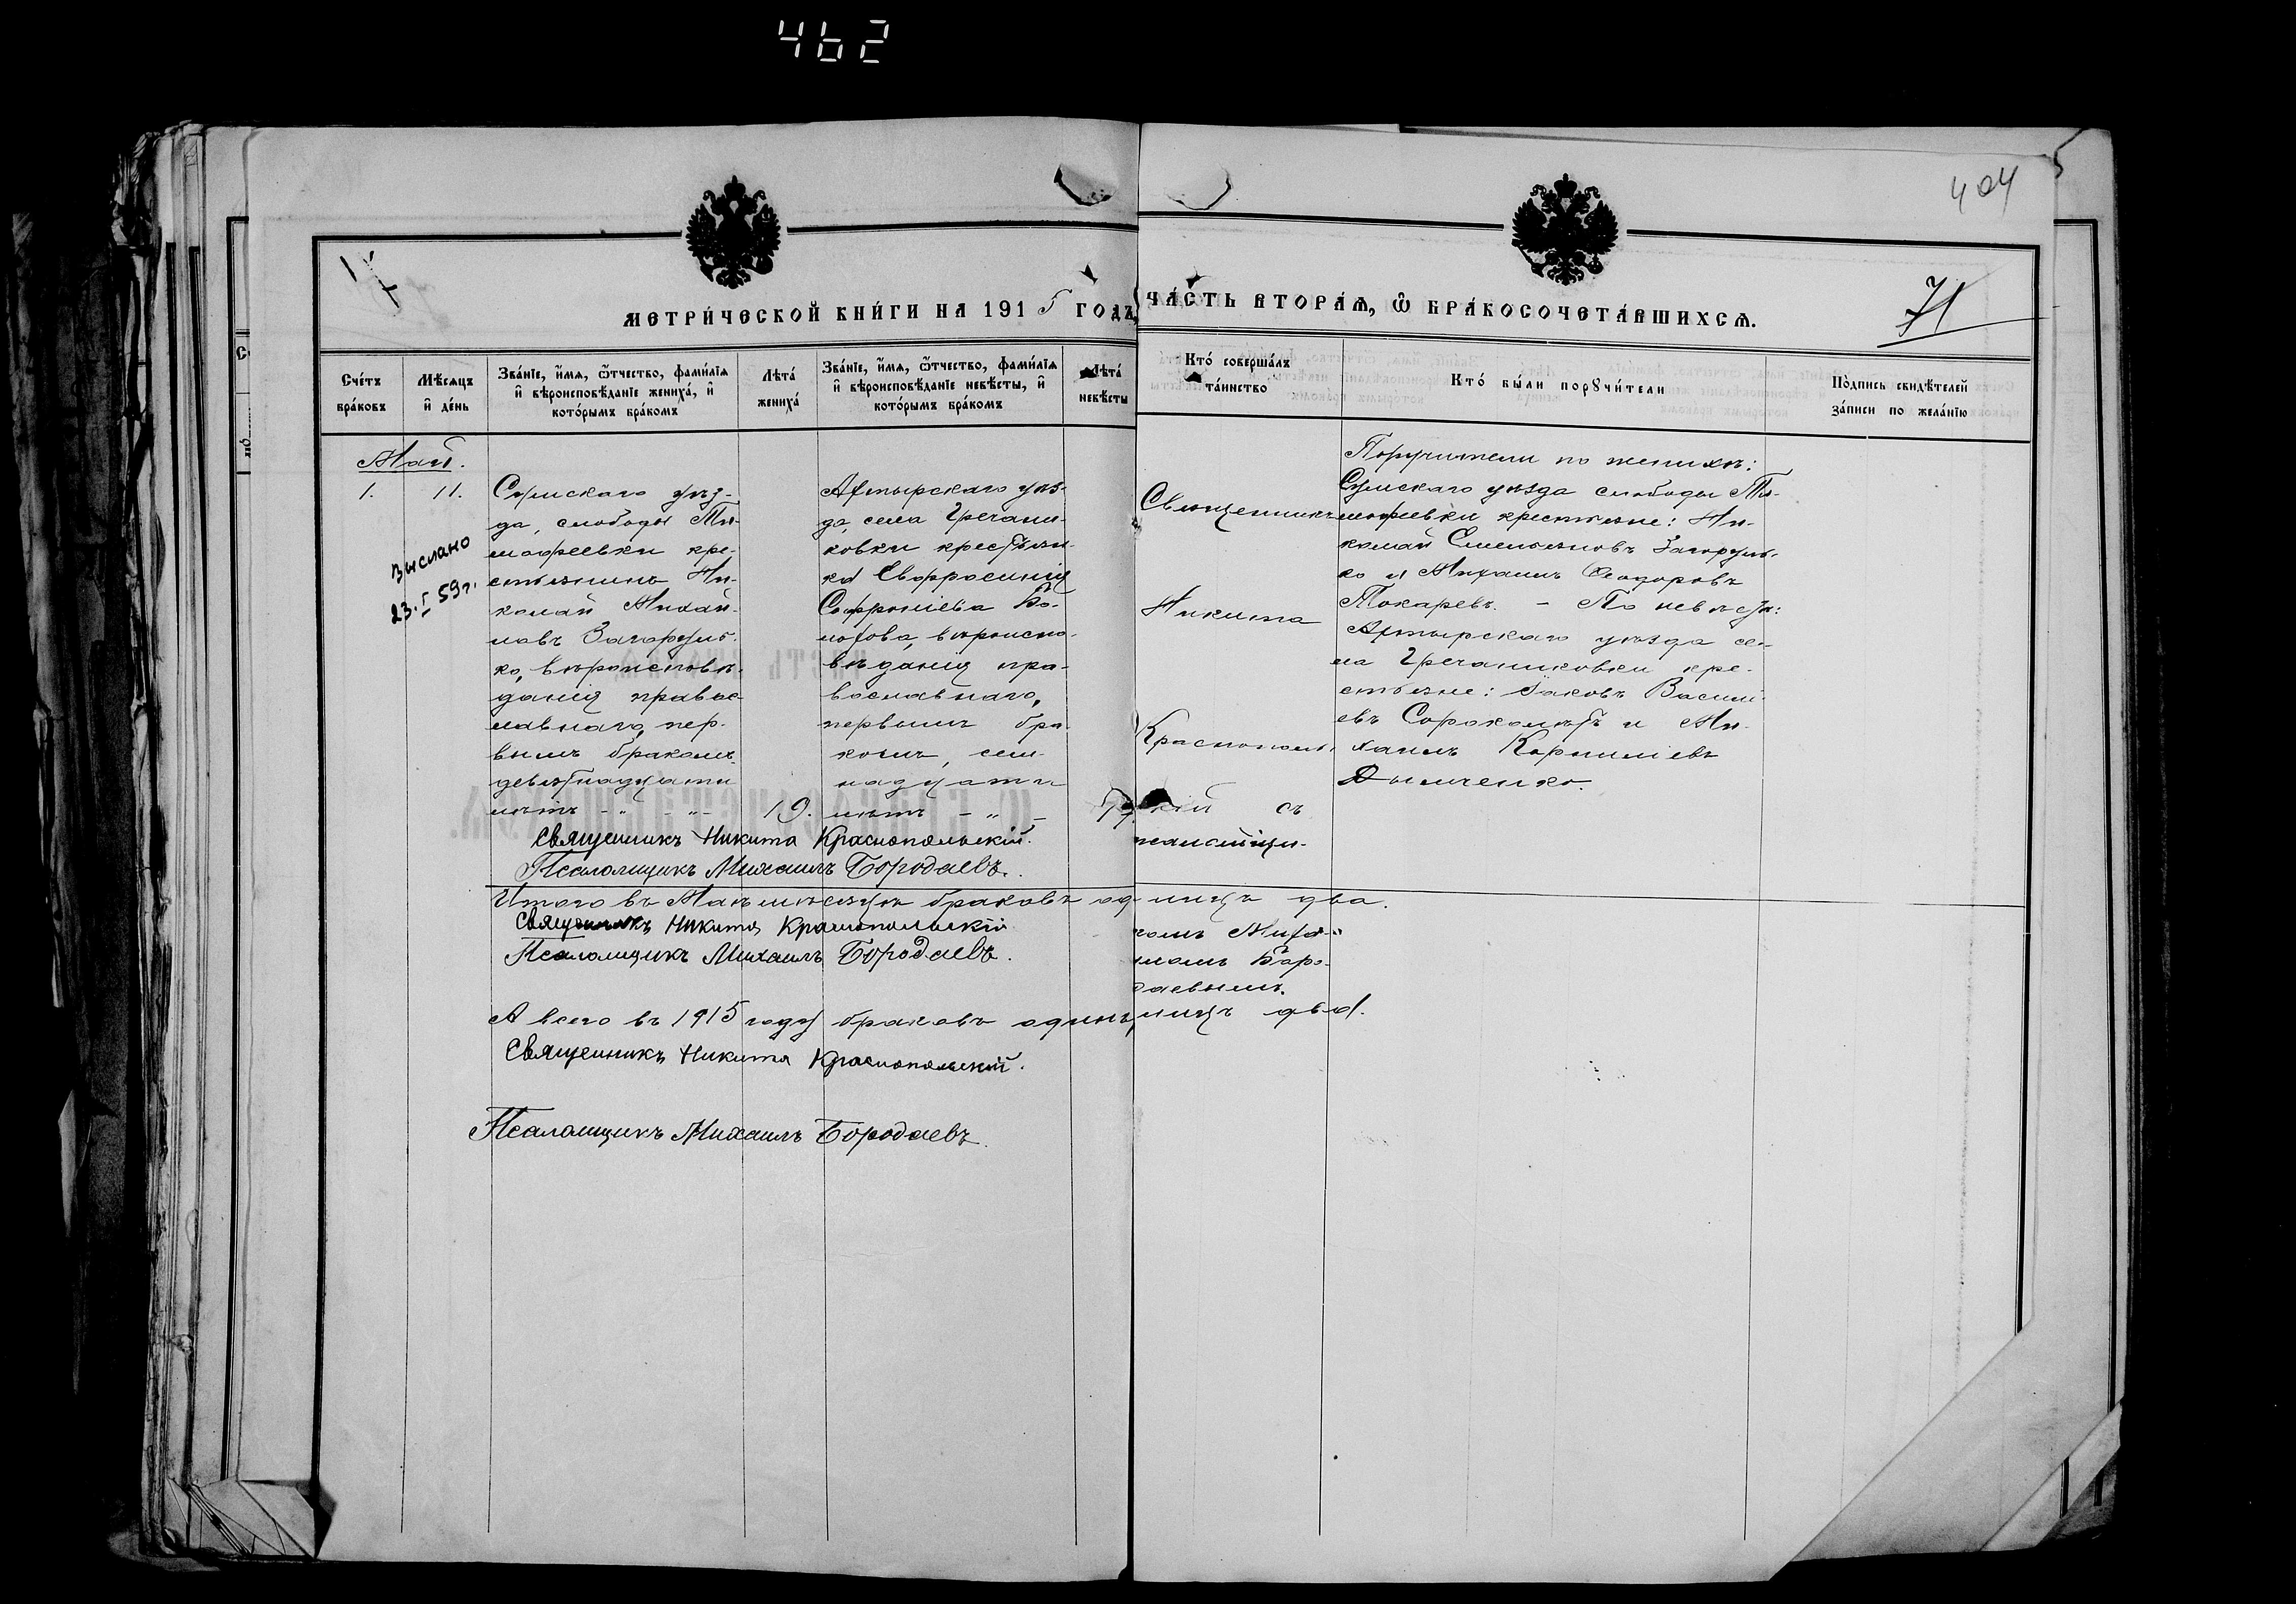 462
404
71
МЕТРИ́ЧЕСКОЙ КНИ́ГИ НА 1915 ГОДЪ, ЧА́СТЬ ВТОРА́Я, Ѽ БРАКОСОЧЕТА́ВШИХСЯ.
Сче́тъ бра́ковъ
Мѣ́сяцъ и҆ де́нь
Зва́нїе, и҆́мя, ѻ҆́тчество, фами́лїя
и҆ вѣроисповѣ́данїе жениха́, и҆
кото́рымъ бра́комъ
Лѣта́ жениха́
Зва́нїе, и҆́мя, ѻ҆́тчество, фами́лїя
и҆ вѣроисповѣ́данїе невѣ́сты, и҆
кото́рымъ бра́комъ
Лѣта́ невѣ́сты
Кто́ соверша́лъ
та́инство
Кто́ бы́ли порꙋчи́тели
По́дпись свидѣ́телей
за́писи по жела́нїю
Май.
1. 11.
Выслано
23.I 59г.
Сумскаго уѣз-
да, слободы Ти-
мофеевки кре-
стьянинъ Ни-
колай Михай-
ловъ Загоруль-
ко, вѣроисповѣ-
данія правос-
лавнаго, пер-
вымъ бракомъ
девятнадцати
лѣтъ - " - " -
19.
Ахтырскаго уѣз-
да, села Гречани-
ковки крестьян-
ка Евфросинія
Софроніева Бо-
лотова, вѣроиспо-
вѣданія пра-
вославнаго,
первымъ бра-
комъ, сем-
надцати
лѣтъ - " -
17.
Священникъ
Никита
Краснополь-
кій съ
псаломщи-
комъ Миха-
иломъ Боро-
даевымъ.
Поручители по женихѣ:
Сумскаго уѣзда слободы Ти-
мофеевки крестьяне: Ни-
колай Емельяновъ Загоруль-
ко и Михаилъ Ѳеодоровъ
Токаревъ. - По невѣстѣ:
Ахтырскаго уѣзда се-
ла Гречаниковки кре-
стьяне: Іаковъ Васили-
евъ Сороколѣтъ и Ми-
хаилъ Корниліевъ
Дымченко.
Священникъ Никита Краснопольскій.
Псаломщикъ Михаилъ Бородаевъ.
Итого въ Маѣ мѣсяцѣ браковъ од- лицъ два.
Священникъ Никита Краснопольскій
Псаломщикъ Михаилъ Бородаевъ.
А всего въ 1915 году браковъ одинъ, лицъ два.
Священникъ Никита Краснопольскій.
Псаломщикъ Михаилъ Бородаевъ.